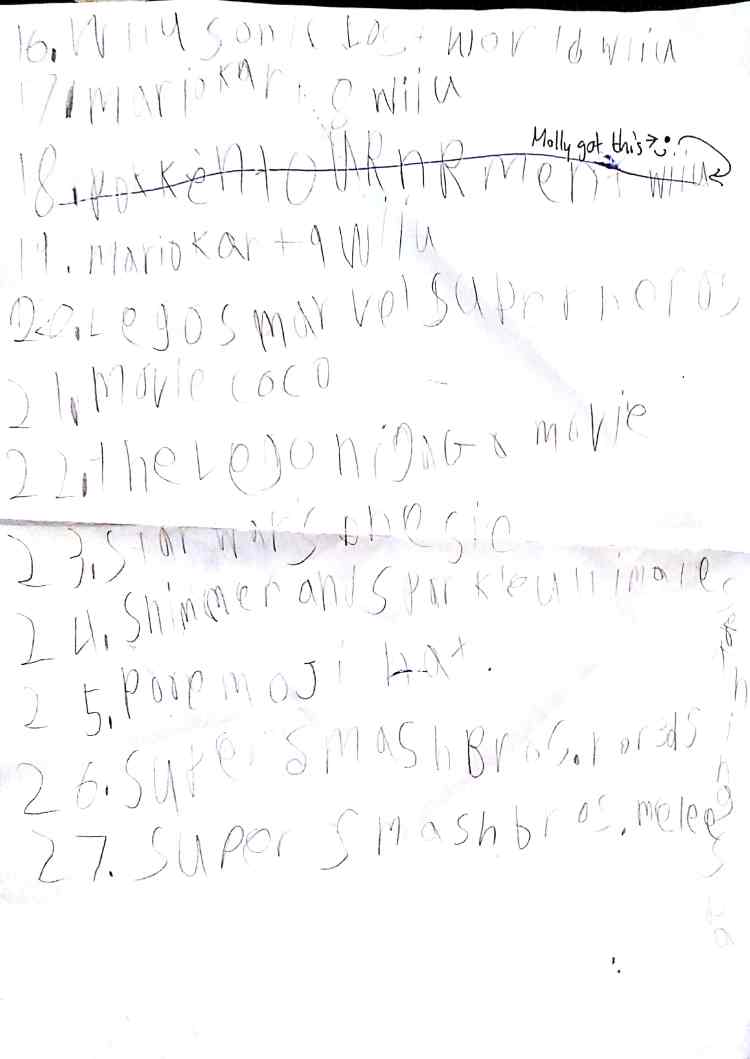 16. Wiiu sonic lost world wiiu
17. Mariokart 8 wiiu
Molly got this → :)
18. pokkén tournament wiiu
19. Mariokart 9 wiiu
20. Legos marvel super heros
21. Movie coco
22. the Lego nigaga movie
23. Star wars
24. Shimmer and Sparkle ultimate
25. Poop emoji Hat.
26. Super Smash Bros. for 3ds
27. Super Smash bros. melee